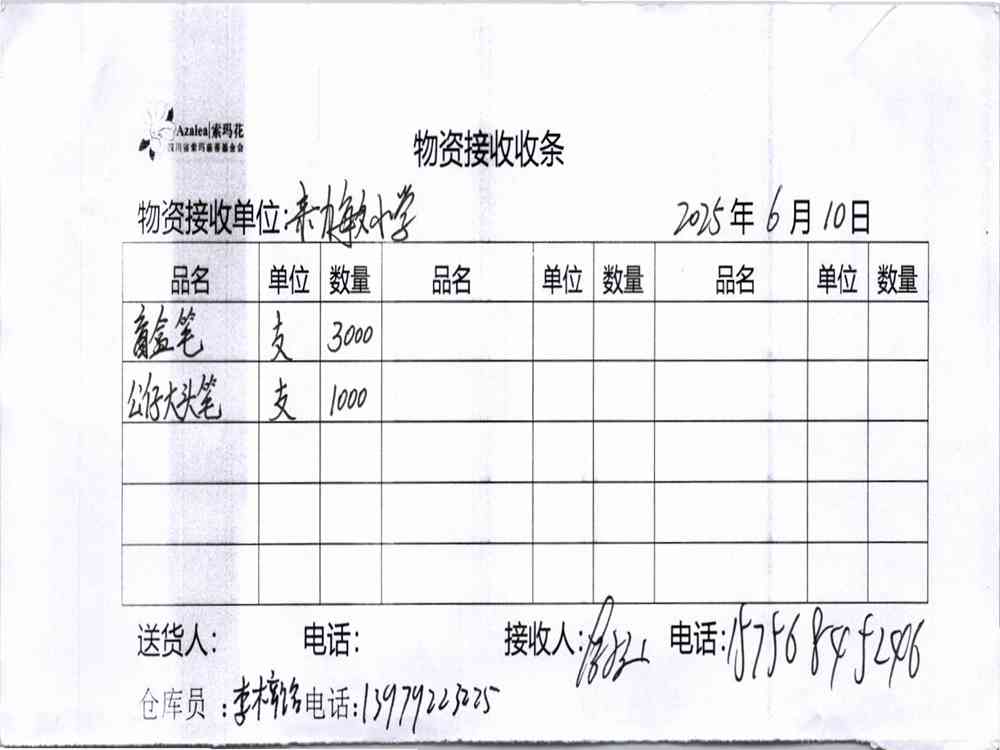 Azalea|索玛花
四川省索玛慈善基金会
物资接收收条
物资接收单位: 小学 2025年6月10日
品名 单位 数量 品名 单位 数量 品名 单位 数量
盲盒笔 支 3000
公仔大头笔 支 1000
送货人: 电话: 接收人: 电话:
仓库员: 李 电话:13979223225